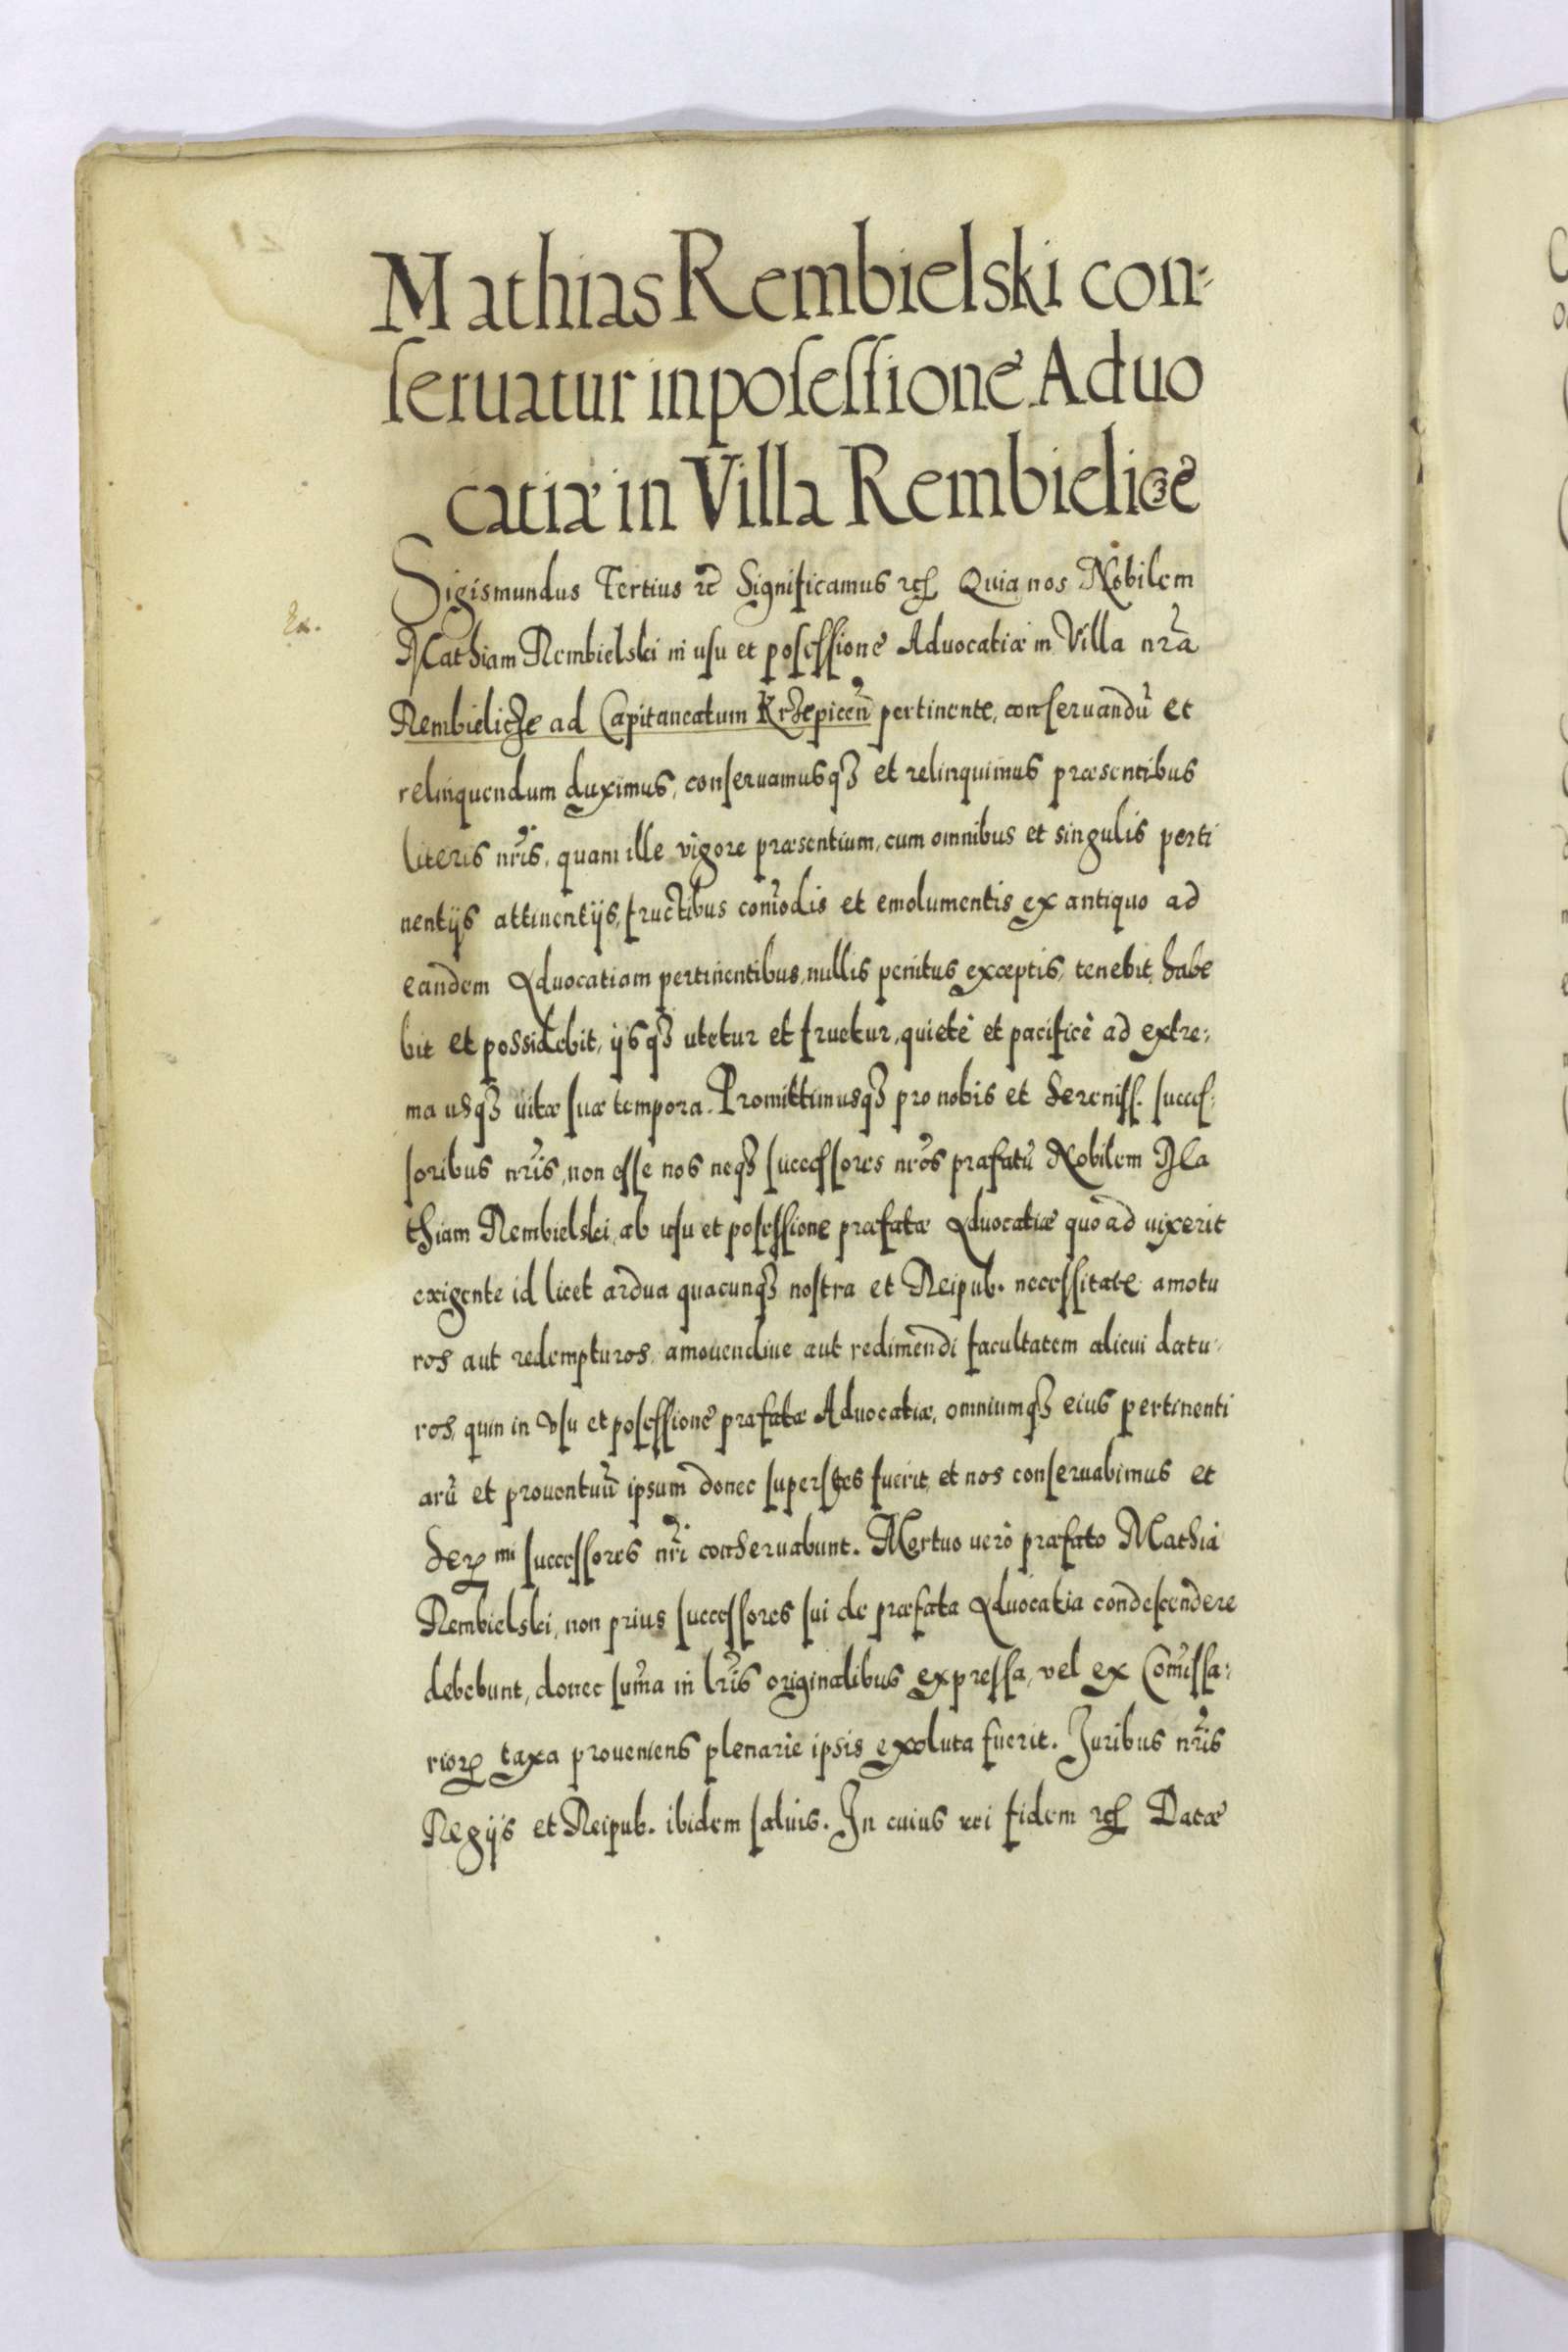 Mathias Rembielski con:
seruatur in posessione Aduo
catiæ in Villa Rembielicze
Sigismundus Tertius etc Significamus etc Quia nos Nobilem
Ex.
Mathiam Rembielski in usu et posessione Aduocatiæ in Villa nr̃a
Rembielicze ad Capitaneatum Krzepiceñ pertinente, conseruandũ et
relinquendum duximus, conseruamusq3 et relinquimus præsentibus
literis nr̃is, quam ille vigore præsentium, cum omnibus et singulis perti
nentijs attinentijs, fructibus com̃odis et emolumentis ex antiquo ad
eandem Aduocatiam pertinentibus, nullis penitus exceptis, tenebit, habe
bit et possidebit, ijsq3 utetur et fruetur, quietè et pacificè ad extre:
ma usq3 uitæ suæ tempora. Promittimusq3 pro nobis et Sereniss. succes:
soribus nr̃is, non esse nos neq3 successores nr̃os præfatũ Nobilem Ma
thiam Rembielski, ab usu et posessione præfatæ Aduocatiæ quo ad uixerit
exigente id licet ardua quacunq3 nostra et Reipub. necessitate amotu
ros aut redempturos, amouendiue aut redimendi facultatem alicui datu:
ros, quin in vsu et posessione præfatæ Aduocatiæ, omniumq3 eius pertinenti
arũ et prouentuũ ipsum donec superstes fuerit, et nos conseruabimus et
Ser mi successores nr̃i conseruabunt. Mortuo uerò præfato Mathia
Rembielski, non prius successores sui de præfata Aduocatia condescendere
debebunt, donec sum̃a in lr̃is originalibus expressa, vel ex Com̃issa:
rioꝝ taxa proueniens plenariè ipsis exoluta fuerit. Juribus nr̃is
Regijs et Reipub. ibidem saluis. In cuius rei fidem etc Datæ